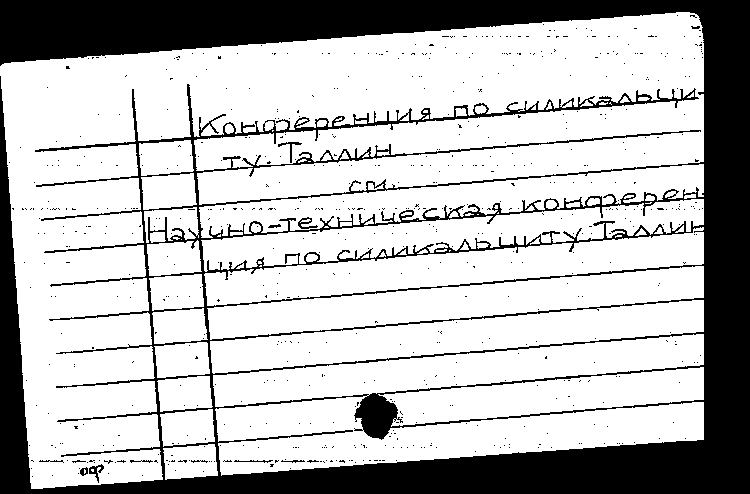 Конференция по силикальци-
ту. Таллин
см.
Научно-техническая конферен-
ция по силикальциту. Таллин